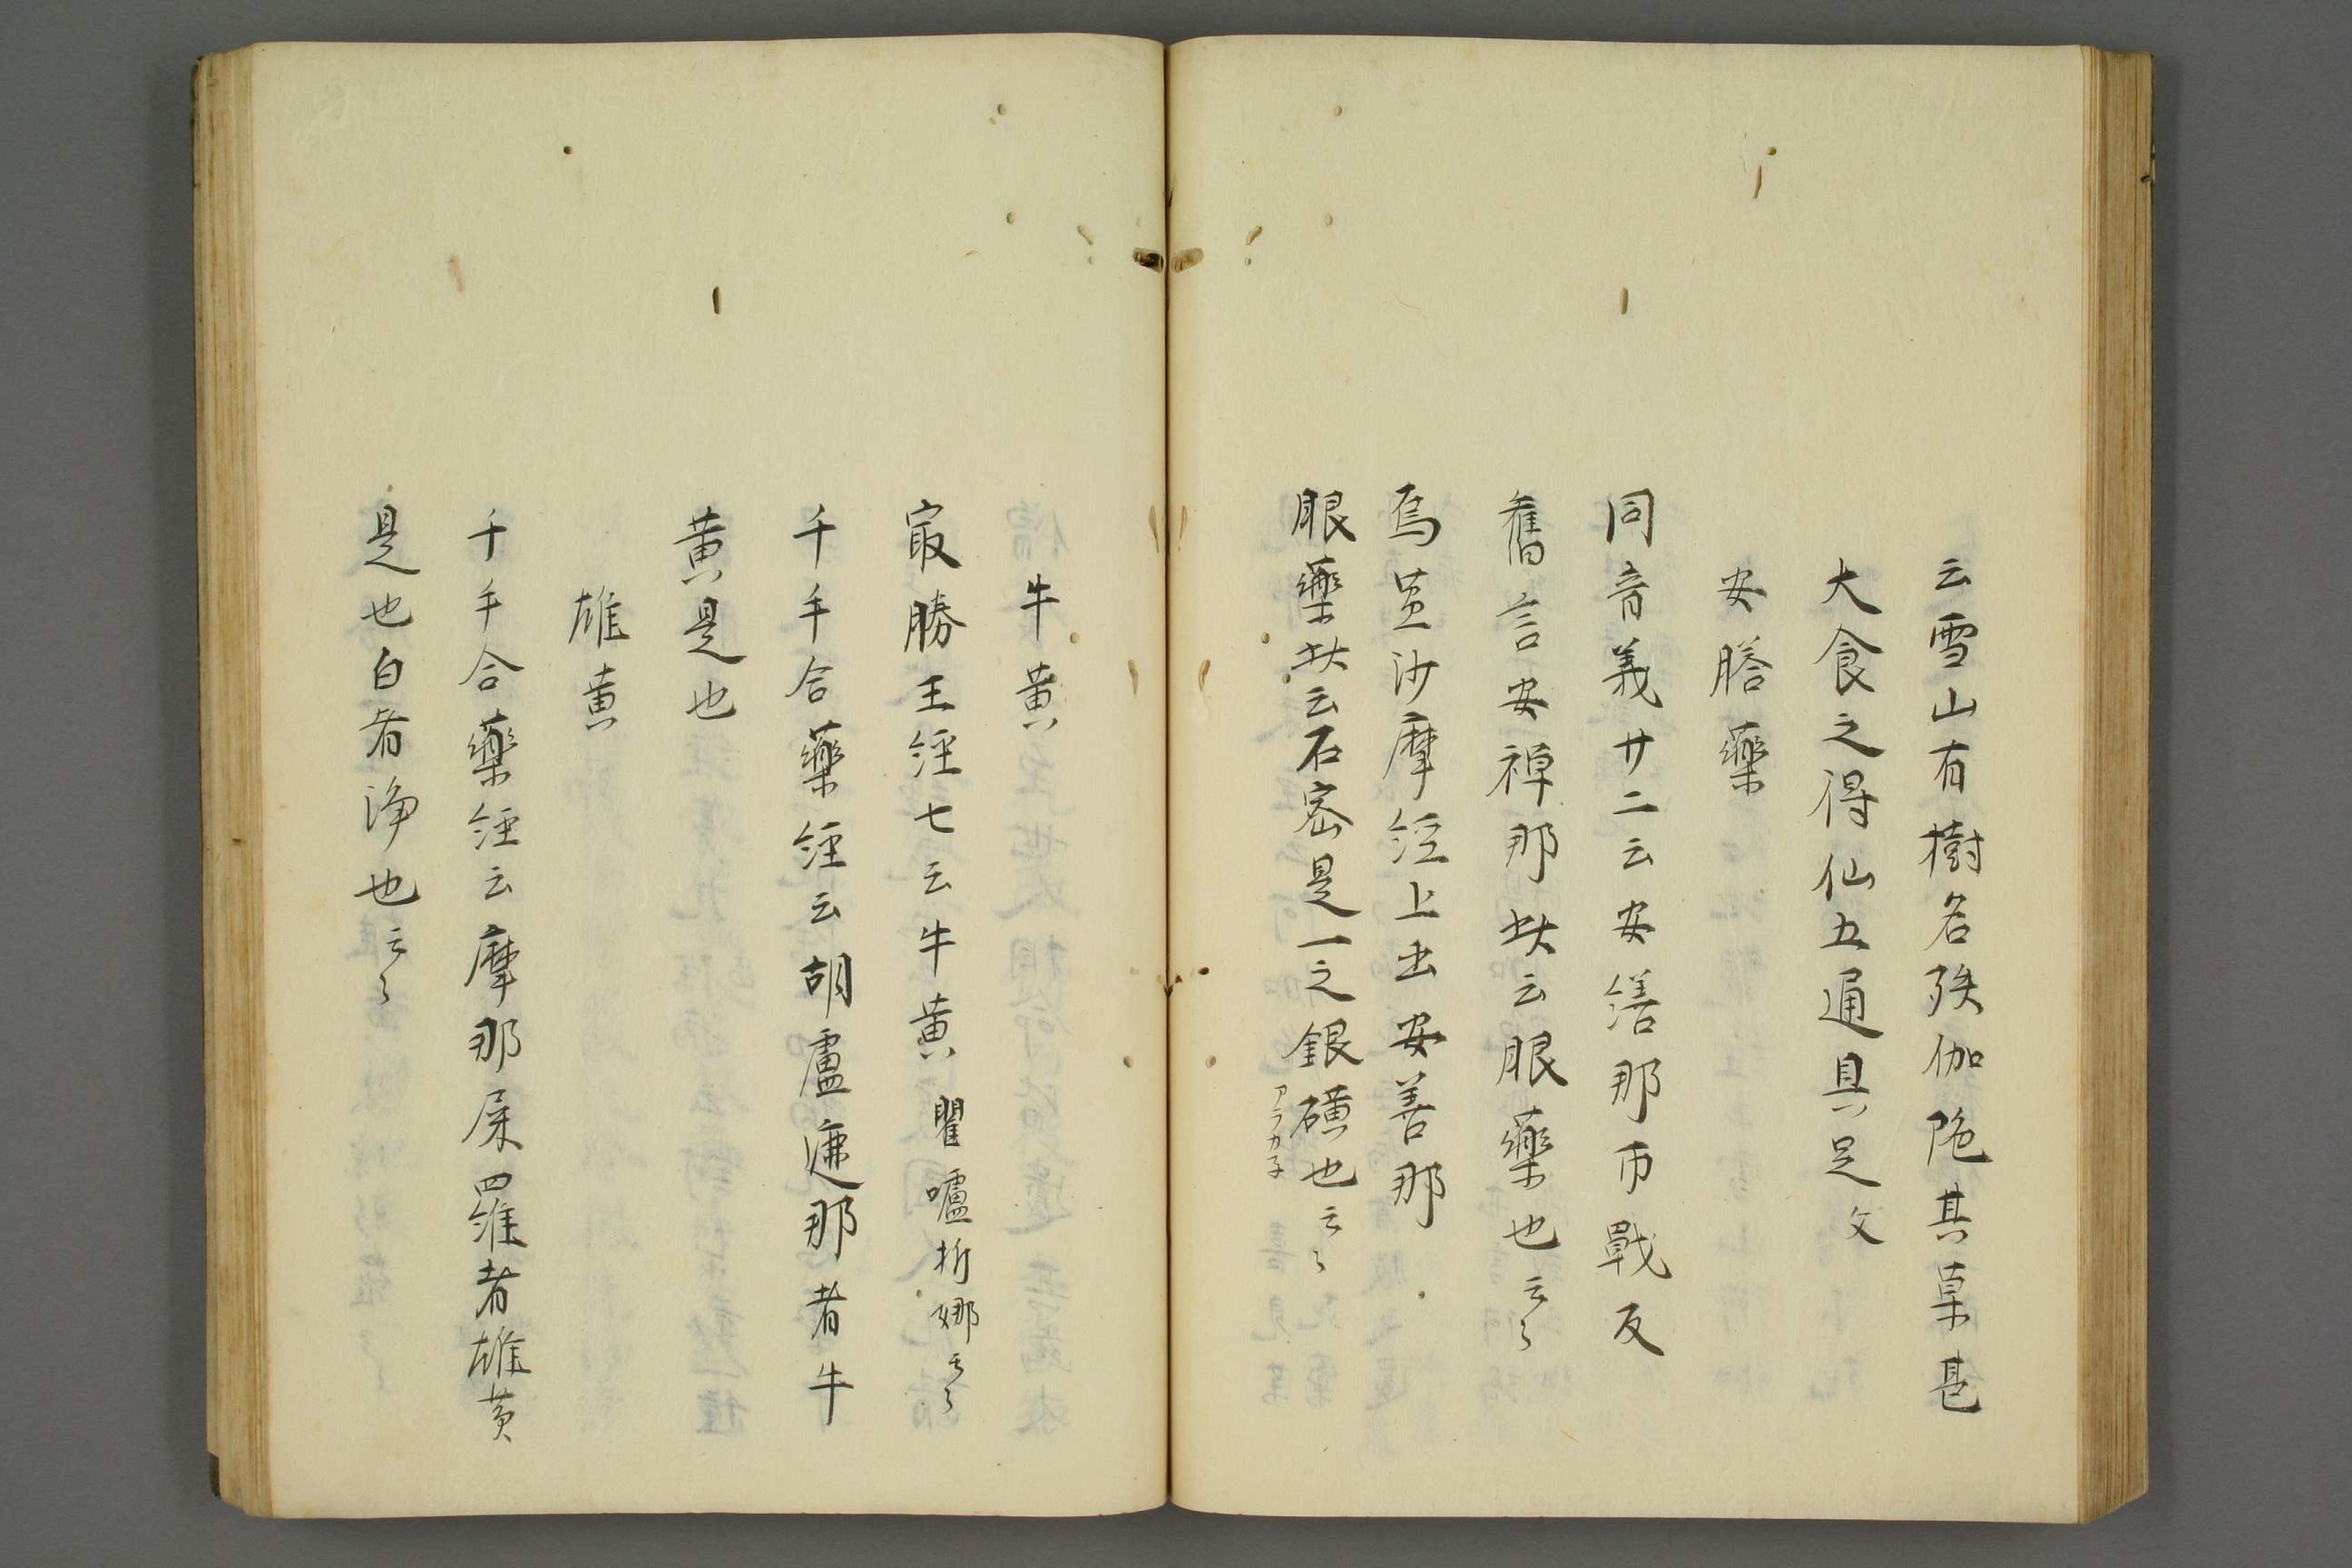 云雪山有樹名殃伽陁其草甚
大食之得仙五通具足文
安膳藥
同音義廿二云安繕那市戰反
舊言安禅那此云眼藥也云々
烏沙摩經上出安善那
眼藥此云石密是一之銀礦也云々
アラカネ
牛黄
㝡勝王經七云牛黄瞿嚧折娜云々
千手合藥經云胡盧遮那者牛
黄是也
雄黄
千手合藥經云摩那屎四羅者雄黄
是也白者浄也云々